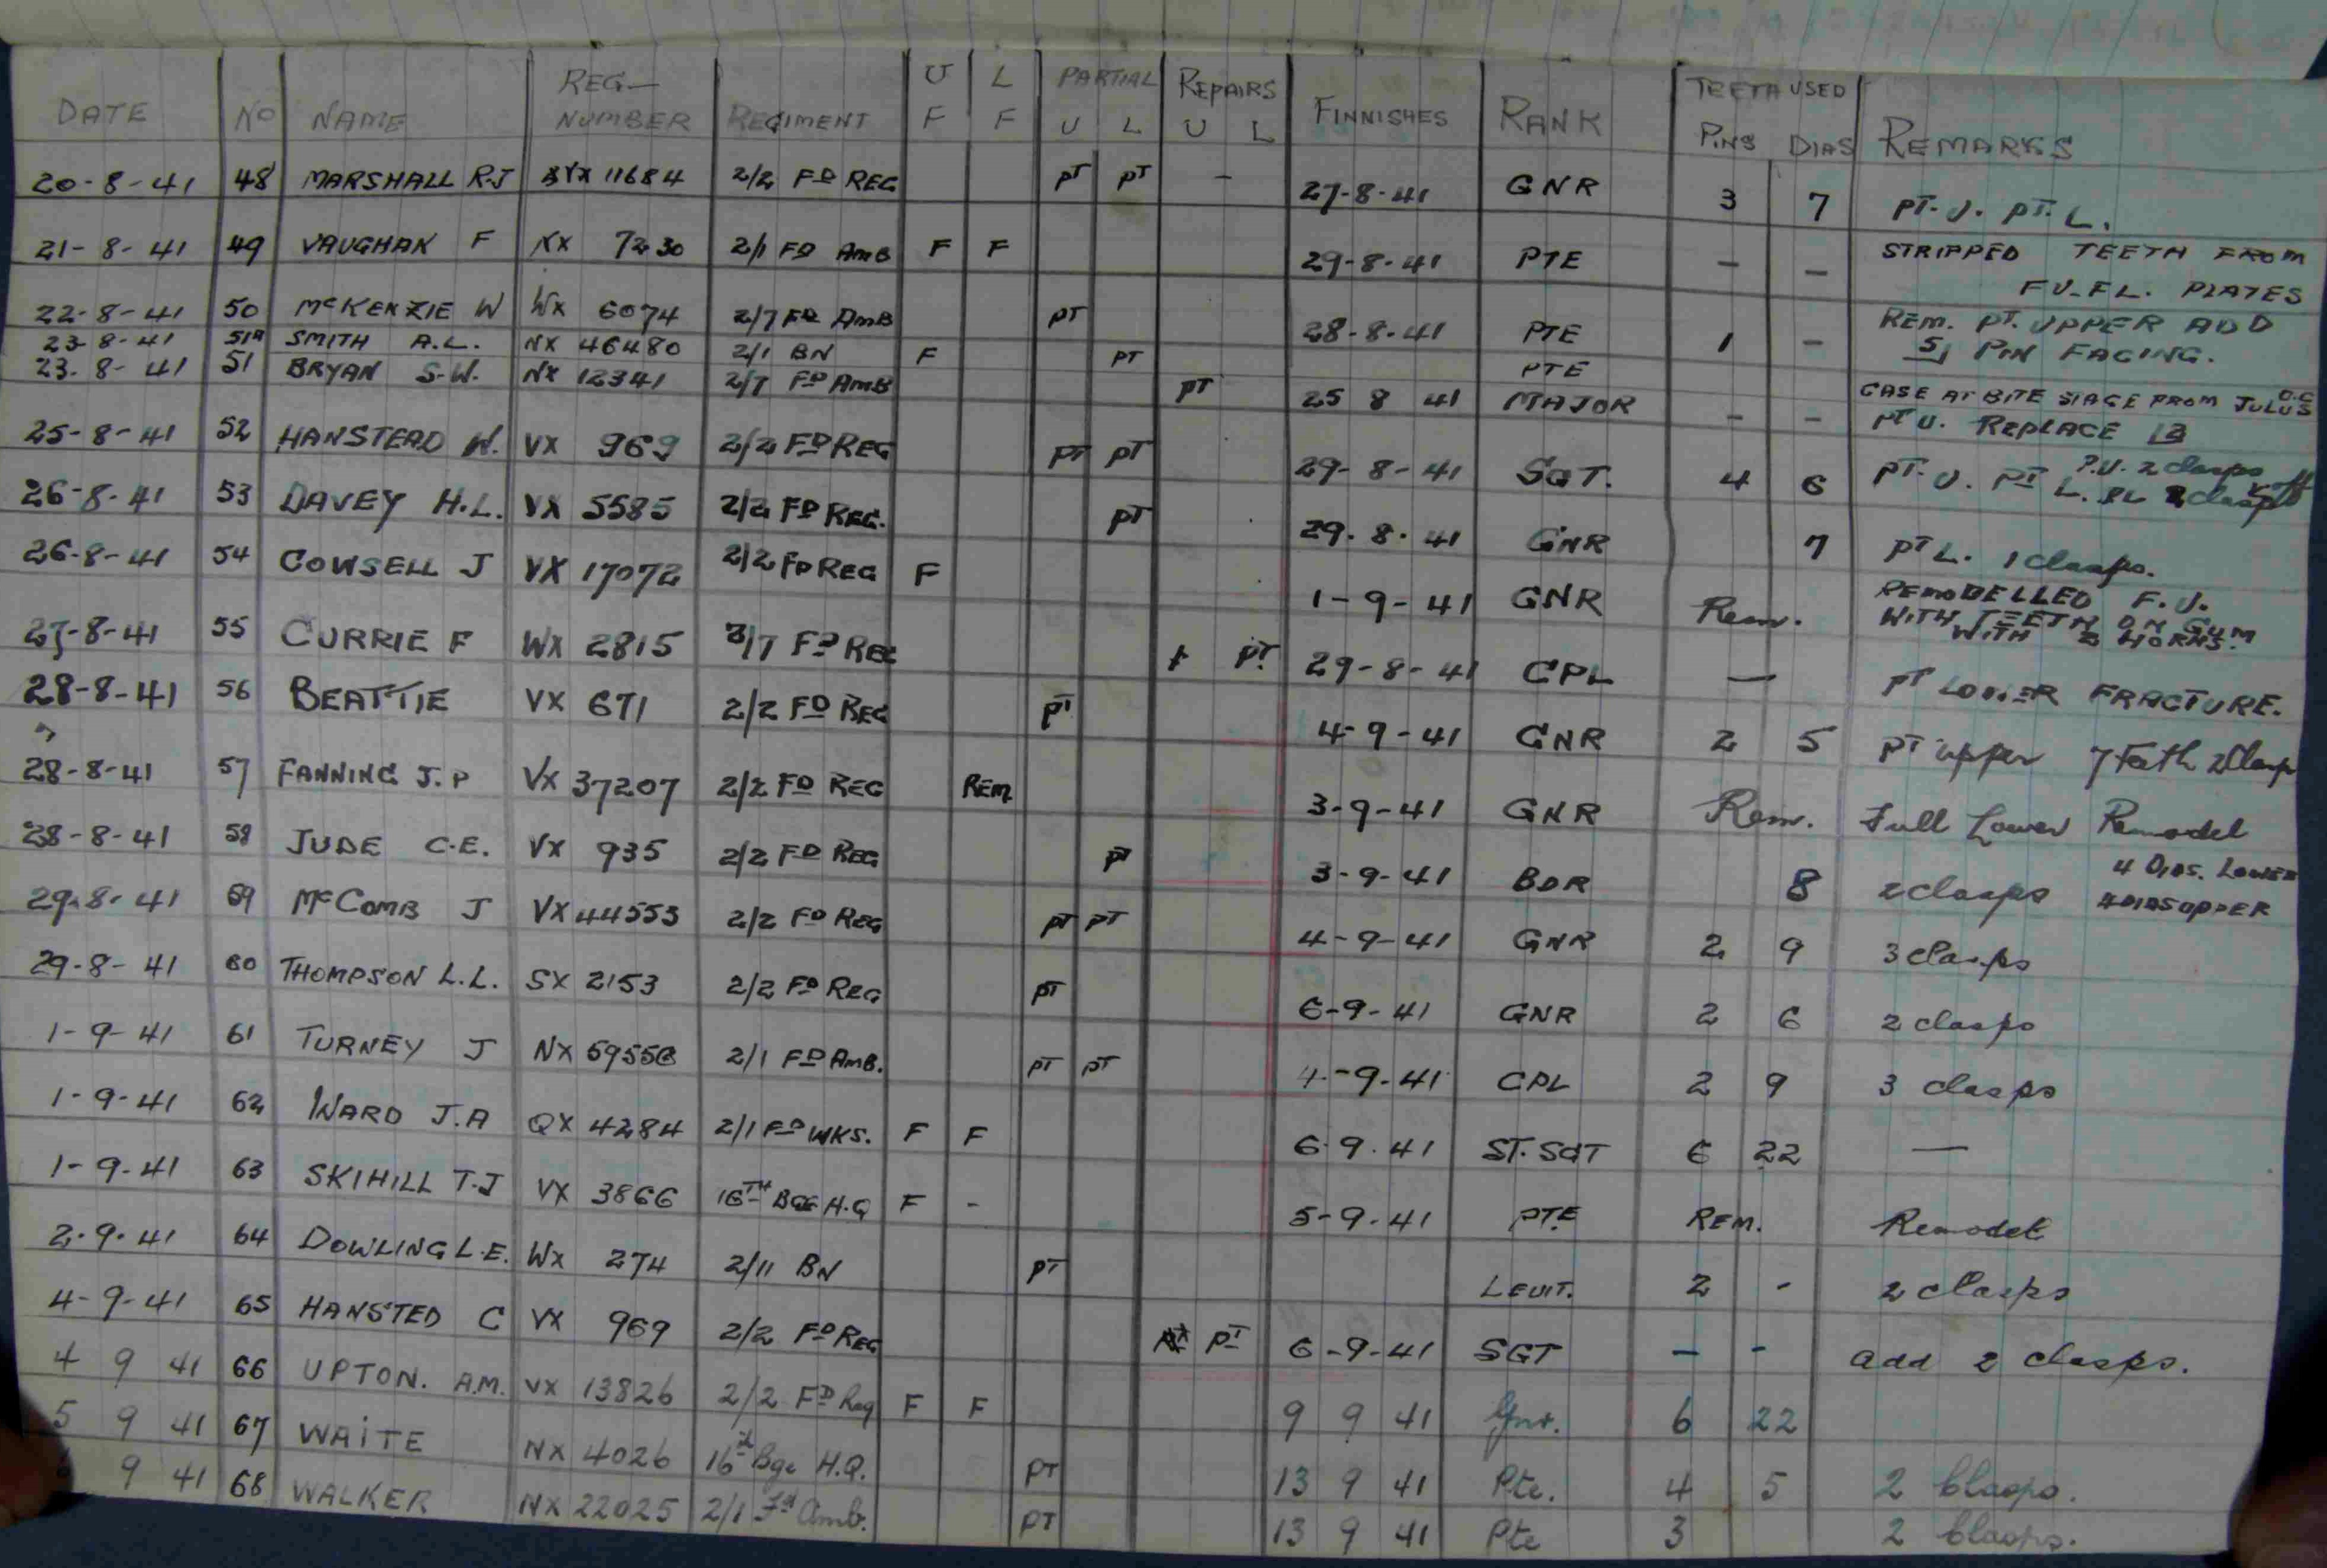 DATE NO NAME REG— NUMBER REGIMENT U F L F PARTIAL U L REPAIRS U L FINNISHES RANK TEETH USED PINS DIAS REMARKS
20-8-41 48 MARSHALL R.J VX 11684 2/2 FD REG PT PT - 27-8-41 GNR 3 7 PT. U. PT. L.
21-8-41 49 VAUGHAN F NX 7230 2/1 FD AMB F F 29-8-41 PTE - - STRIPPED TEETH FROM
FU-FL. PLATES
22-8-41 50 McKENZIE W WX 6074 2/7 FD AMB PT 28-8-41 PTE 1 - REM. PT. UPPER ADD
5 PIN FACING.
23-8-41 51A SMITH A.L. NX 46480 2/1 BN F PT PTE CASE AT BITE STAGE FROM JULUS O.C
23.8-41 51 BRYAN S.W. NX 12341 2/7 FD AMB PT 25 8 41 MAJOR - - PT U. REPLACE 3
25-8-41 52 HANSTEAD W. VX 969 2/2 FD REG PT PT 29-8-41 SGT. 4 6 PT. U. PT L. P.U. 2 clasps
26-8-41 53 DAVEY H.L. VX 5585 2/2 FD REG. PT 29.8.41 GNR 7 PT L. 1 Clasps.
26-8-41 54 COWSELL J VX 17072 2/2 FD REG F 1-9-41 GNR Rem. REMODELLED F.U.
WITH TEETH ON GUM
WITH 2 HORNS.
27-8-41 55 CURRIE F WX 2815 2/7 FD REG PT 29-8-41 CPL — PT LOWER FRACTURE.
28-8-41 56 BEATTIE VX 671 2/2 FD REG PT 4-9-41 GNR 2 5 PT upper 7 teeth 2 Clasp
28-8-41 57 FANNING J.P VX 37207 2/2 FD REG REM 3-9-41 GNR Rem. Full Lower Remodel
28-8-41 58 JUDE C.E. VX 935 2/2 FD REG PT 3-9-41 BDR 8 2 clasps 4 DIAS. LOWER
4 DIAS UPPER
29.8.41 59 McCOMB J VX 44553 2/2 FD REG PT PT 4-9-41 GNR 2 9 3 clasps
29-8-41 60 THOMPSON L.L. SX 2153 2/2 FD REG PT 6-9-41 GNR 2 6 2 clasps
1-9-41 61 TURNEY J NX 59558 2/1 FD AMB. PT PT 4-9-41 CPL 2 9 3 clasps
1-9-41 62 WARD J.A QX 4284 2/1 FD WKS. F F 6.9.41 ST.SGT 6 22 —
1-9-41 63 SKIHILL T.J VX 3866 16TH BGE H.Q F - 5-9-41 PTE REM. Remodel
2.9.41 64 DOWLING L.E. WX 274 2/11 BN PT LEUIT. 2 - 2 clasps
4-9-41 65 HANSTED C VX 969 2/2 FD REG PT 6-9-41 SGT - - add 2 clasps.
4 9 41 66 UPTON. A.M. VX 13826 2/2 FD Reg F F 9 9 41 Gnr. 6 22
5 9 41 67 WAITE NX 4026 16th Bge H.Q. PT 13 9 41 Pte. 4 5 2 Clasps.
9 41 68 WALKER NX 22025 2/1 Fd Amb. PT 13 9 41 Pte 3 2 Clasps.